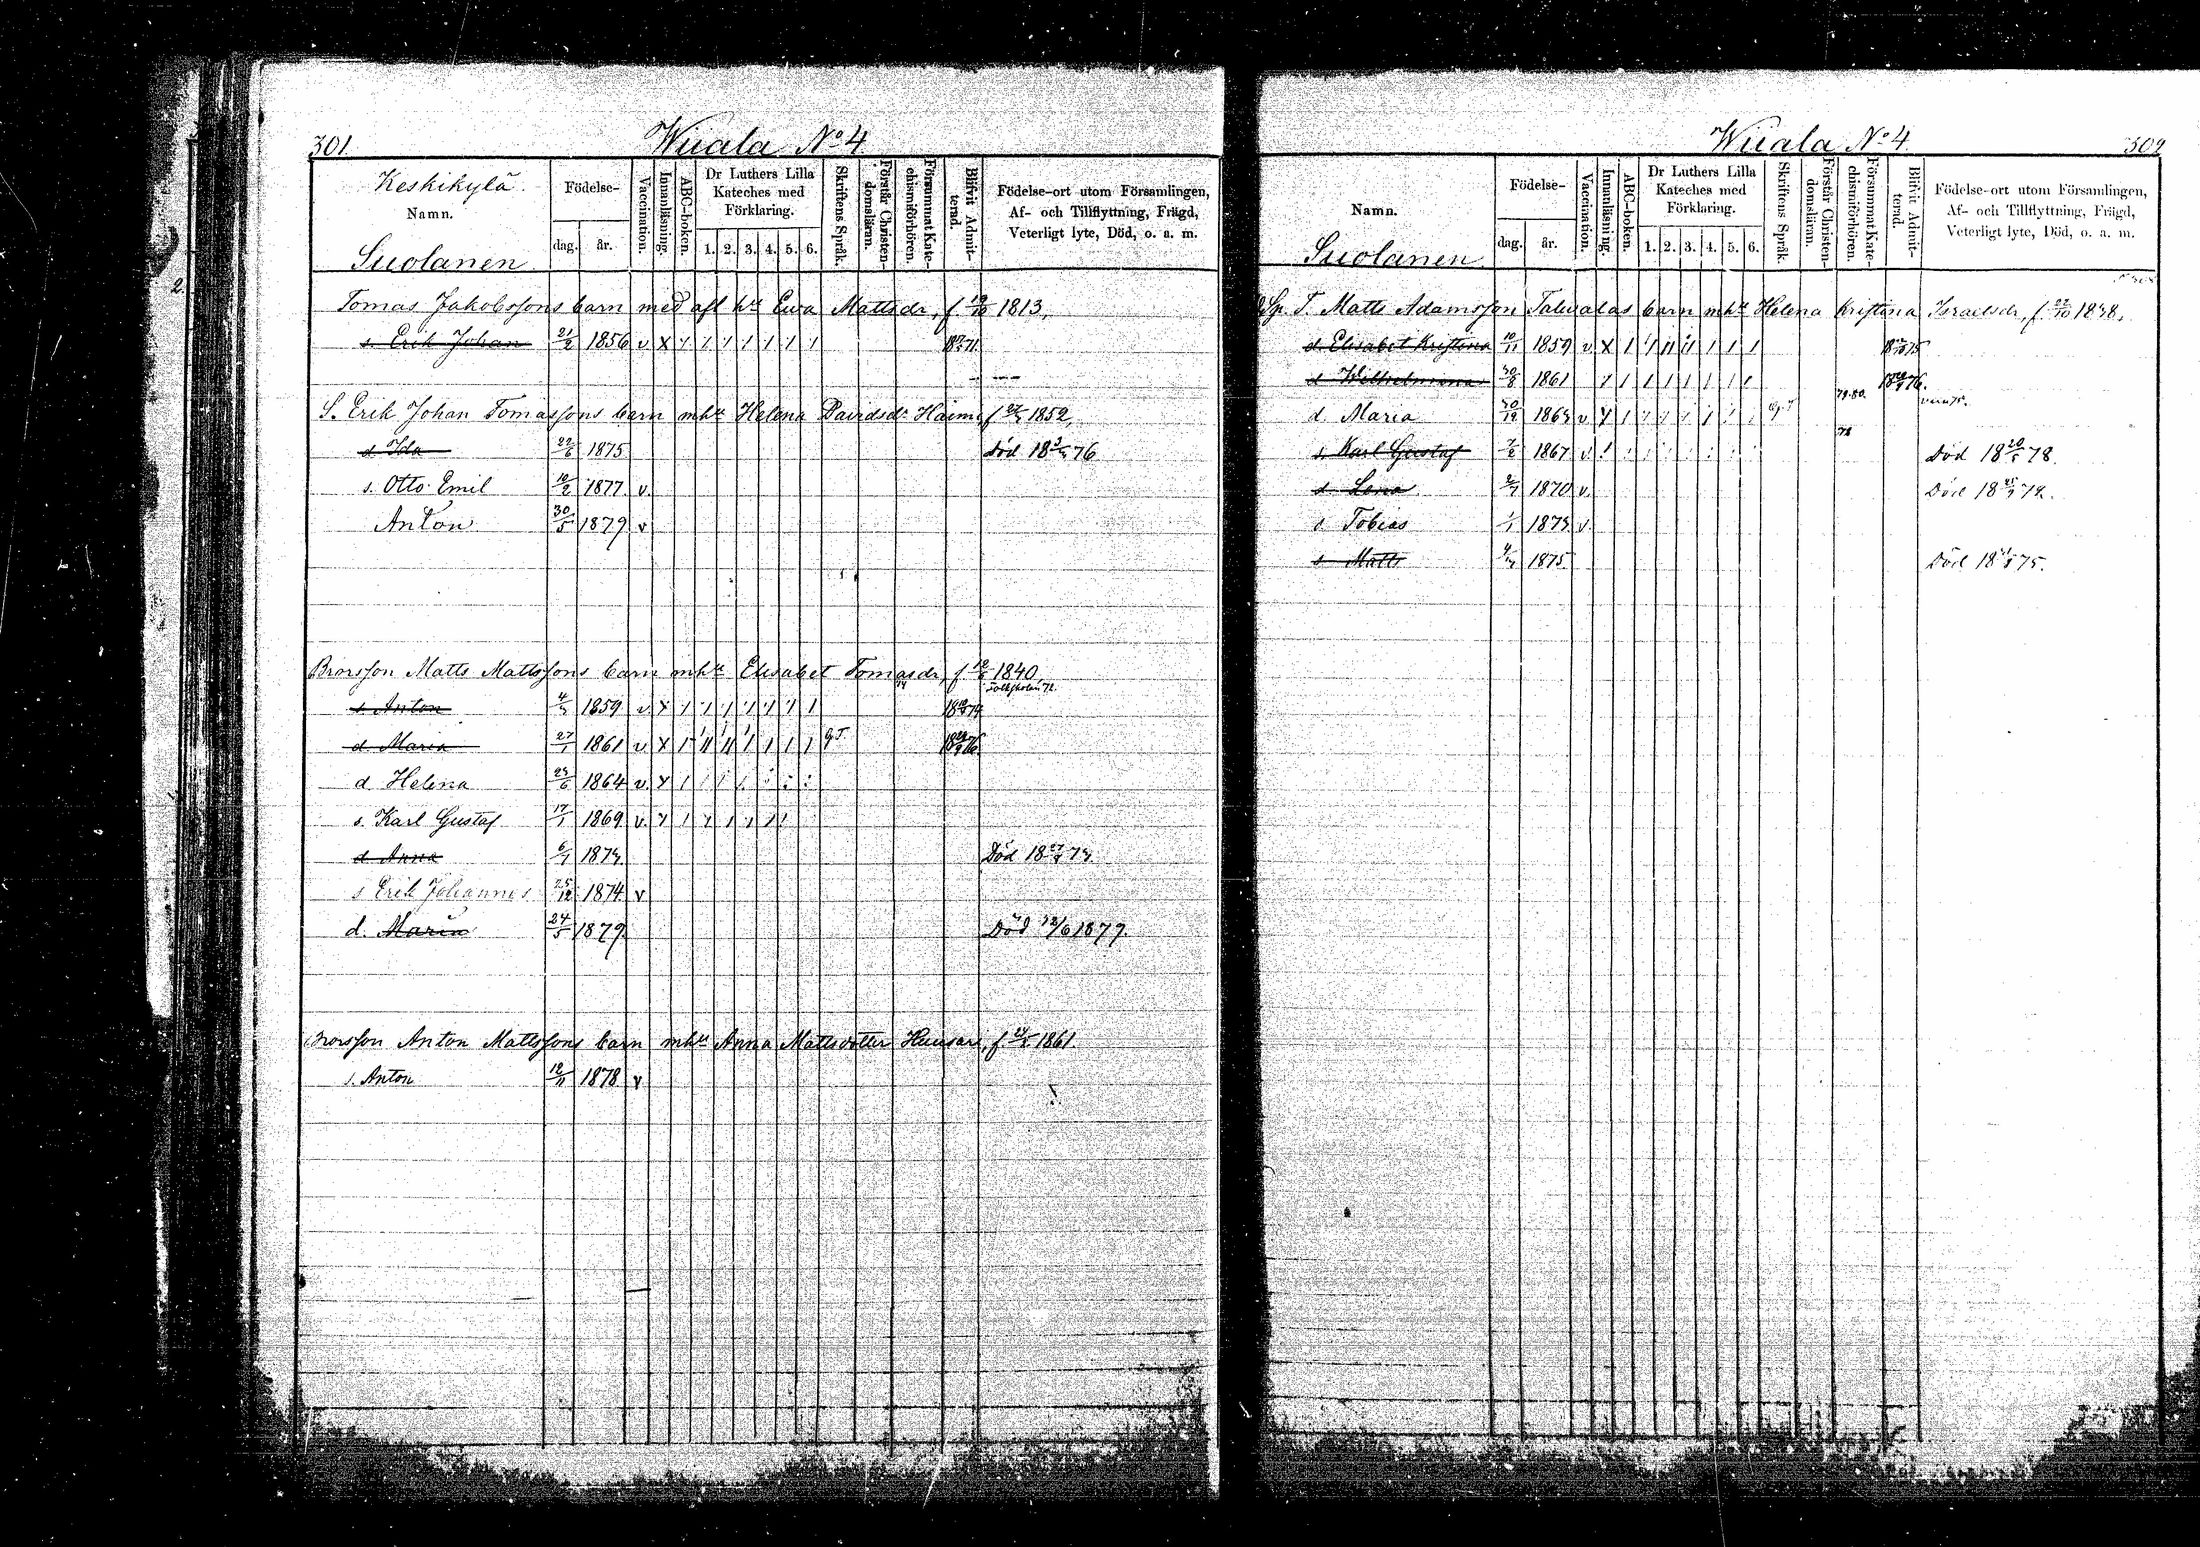 301. Wiiala No 4
Keskikylä.
Namn.
Suolanen
Födelse-
dag. år.
Vaccination.
Innanläsning.
ABC-boken.
Dr Luthers Lilla
Kateches med
Förklaring.
1. 2. 3. 4. 5. 6.
Skriftens Språk.
Förstår Christen-
domsläran.
Försummat Kate-
chismiförhören.
Blifvit Admit-
terad.
Födelse-ort utom Församlingen,
Af- och Tillflyttning, Frägd,
Veterligt lyte, Död, o. a. m.
Tomas Jakobssons barn med afl hu Ewa Mattsdr, f 19/10 1813,
s. Erik Johan 21/2 1856 v x
S. Erik Johan Tomassons barn mhu Helena Davidsdr Haimi, f 1852,
d Ida 22/6 1875 död 76
s. Otto Emil 10/2 1877 v.
Anton 30/5 1879 v
Brorsson Matts Mattssons barn mhu Elisabet Tomasdr, f 1840,
s. Anton 1859 v. x
d. Maria 27/1 1861 v x
d Helena 1864 v. x
s. Karl Gustaf 17/1 1869 v.
d Anna Död
s Erik Johannes 25/12 1874 v
d. Maria 24/5 1879. Död 12/6 1879.
Brorsson Anton Mattssons barn mhu Anna Mattsdotter Huusari, f 1861
s. Anton 12/11 1878 v
Wiiala No 4 302
Namn.
Suolanen
Födelse-
dag. år.
Vaccination.
Innanläsning.
ABC-boken.
Dr Luthers Lilla
Kateches med
Förklaring.
1. 2. 3. 4. 5. 6.
Skriftens Språk.
Förstår Christen-
domsläran.
Försummat Kate-
chismiförhören.
Blifvit Admit-
terad.
Födelse-ort utom Församlingen,
Af- och Tillflyttning, Frägd,
Veterligt lyte, Död, o. a. m.
T. Matts Adamsson Talvalas barn mhu Helena Kristina Israelsdr, f 22/10 1838,
d. Elisabet Kristina 10/11 1859 v x
d Wilhelmina 30/8 1861
79.80.
d. Maria 30/12 v
78
s. Karl Gustaf 7/2 1867 v Död 78.
d. Lena 1870 v. Död
s. Tobias 1/1 v
s Matts 1875 Död 75.